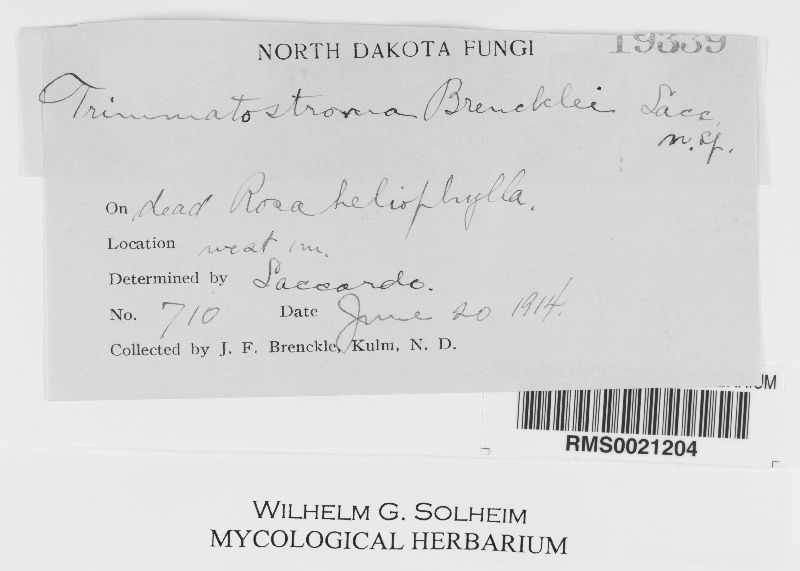 NORTH DAKOTA FUNGI 19339
Trimmatostroma Brencklei Sacc.
n. sp.
On dead Rosa heliophylla.
Location west 1m.
Determined by Saccardo.
No. 710 Date June 20 1914.
Collected by J. F. Brenckle, Kulm, N. D.
RMS0021204
WILHELM G. SOLHEIM
MYCOLOGICAL HERBARIUM